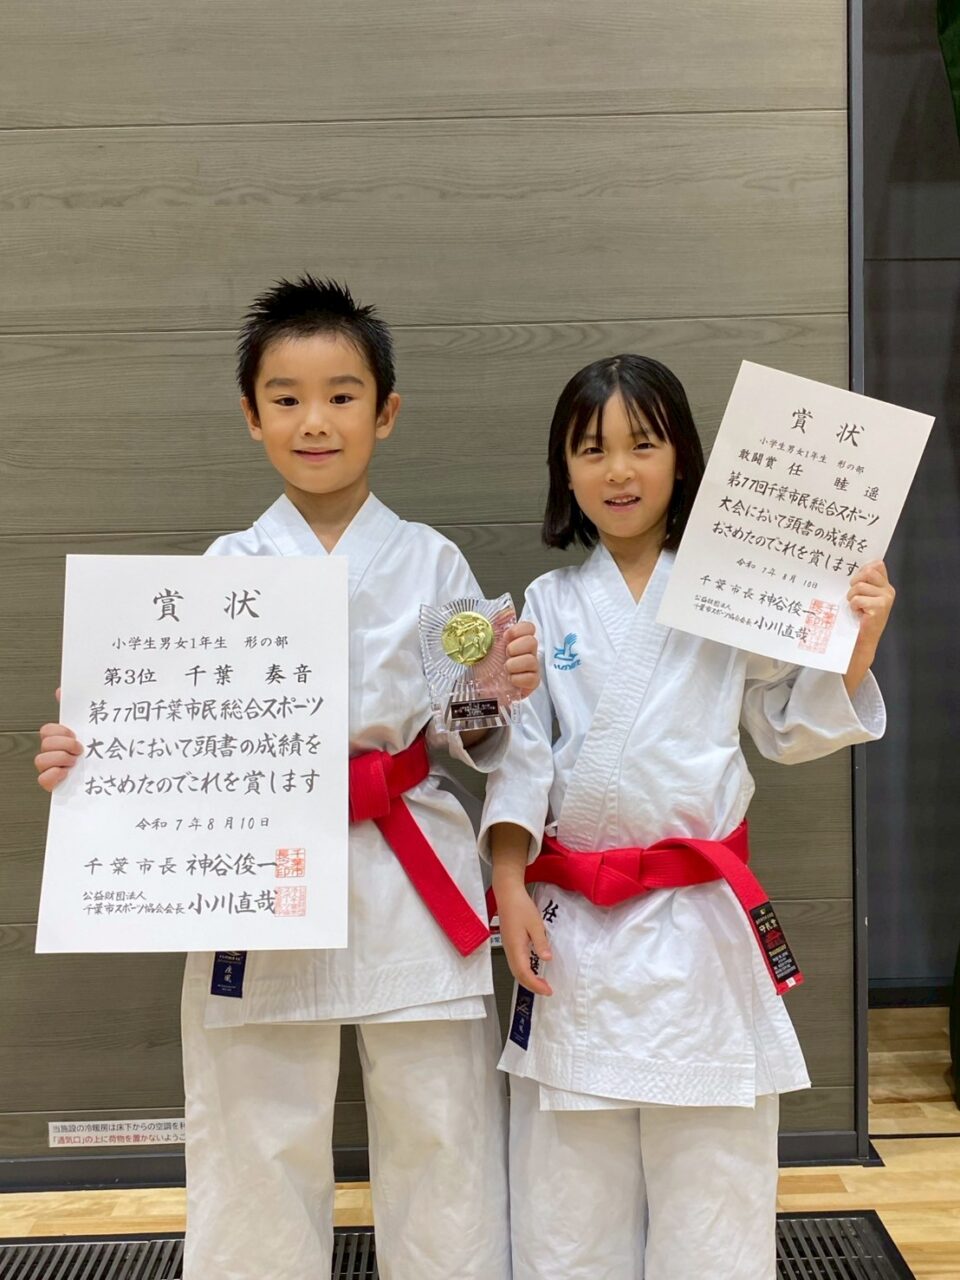 賞 状
小学生男女1年生 形の部
第3位 千葉 奏音
第77回千葉市民総合スポーツ
大会において頭書の成績を
おさめたのでこれを賞します
令和7年8月10日
千葉市長 神谷俊一
公益財団法人
千葉市スポーツ協会会長 小川直哉
賞 状
小学生男女1年生 形の部
敢闘賞 任 睦遥
第77回千葉市民総合スポーツ
大会において頭書の成績を
おさめたのでこれを賞します
令和7年8月10日
千葉市長 神谷俊一
公益財団法人
千葉市スポーツ協会会長 小川直哉
疾風
任
守礼堂
当施設の冷暖房は床下からの空調を
「通気口」の上に荷物を置かないようこ